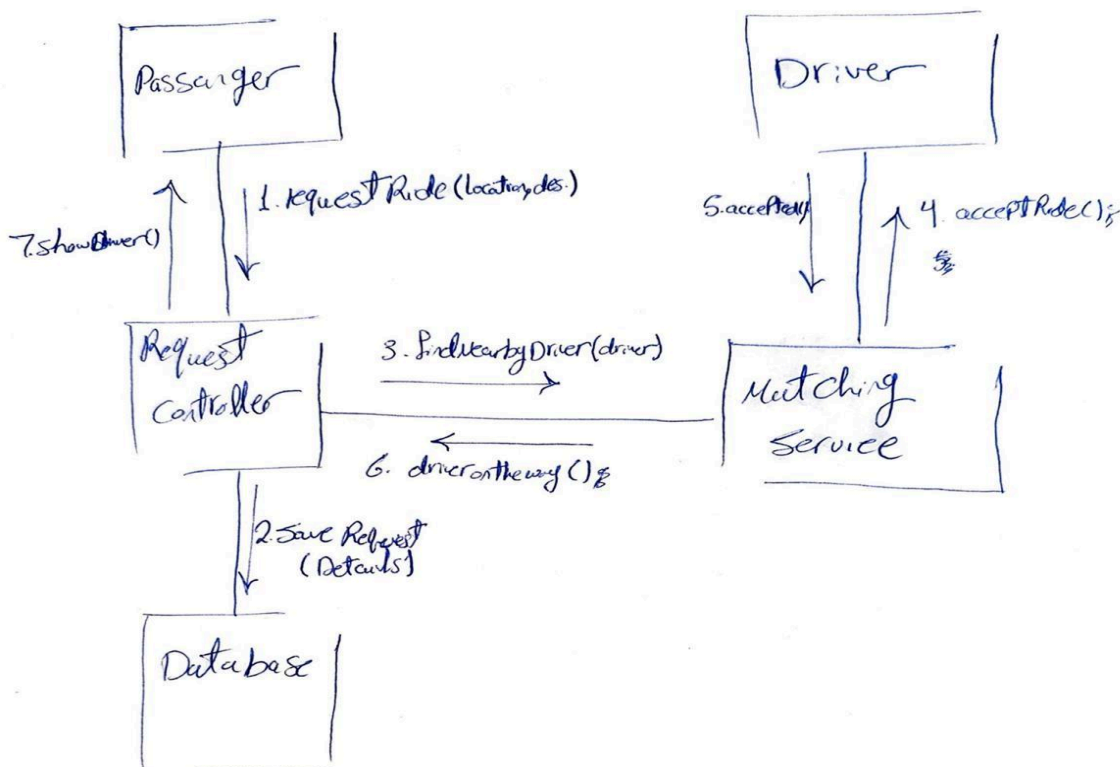 Passanger
Driver
1. requestRide(location, des.)
7. showDriver()
5. accepted()
4. acceptRide();
Request
Controller
3. findNearbyDriver(driver)
Matching
Service
6. driverontheway();
2. Save Request
(Details)
Database